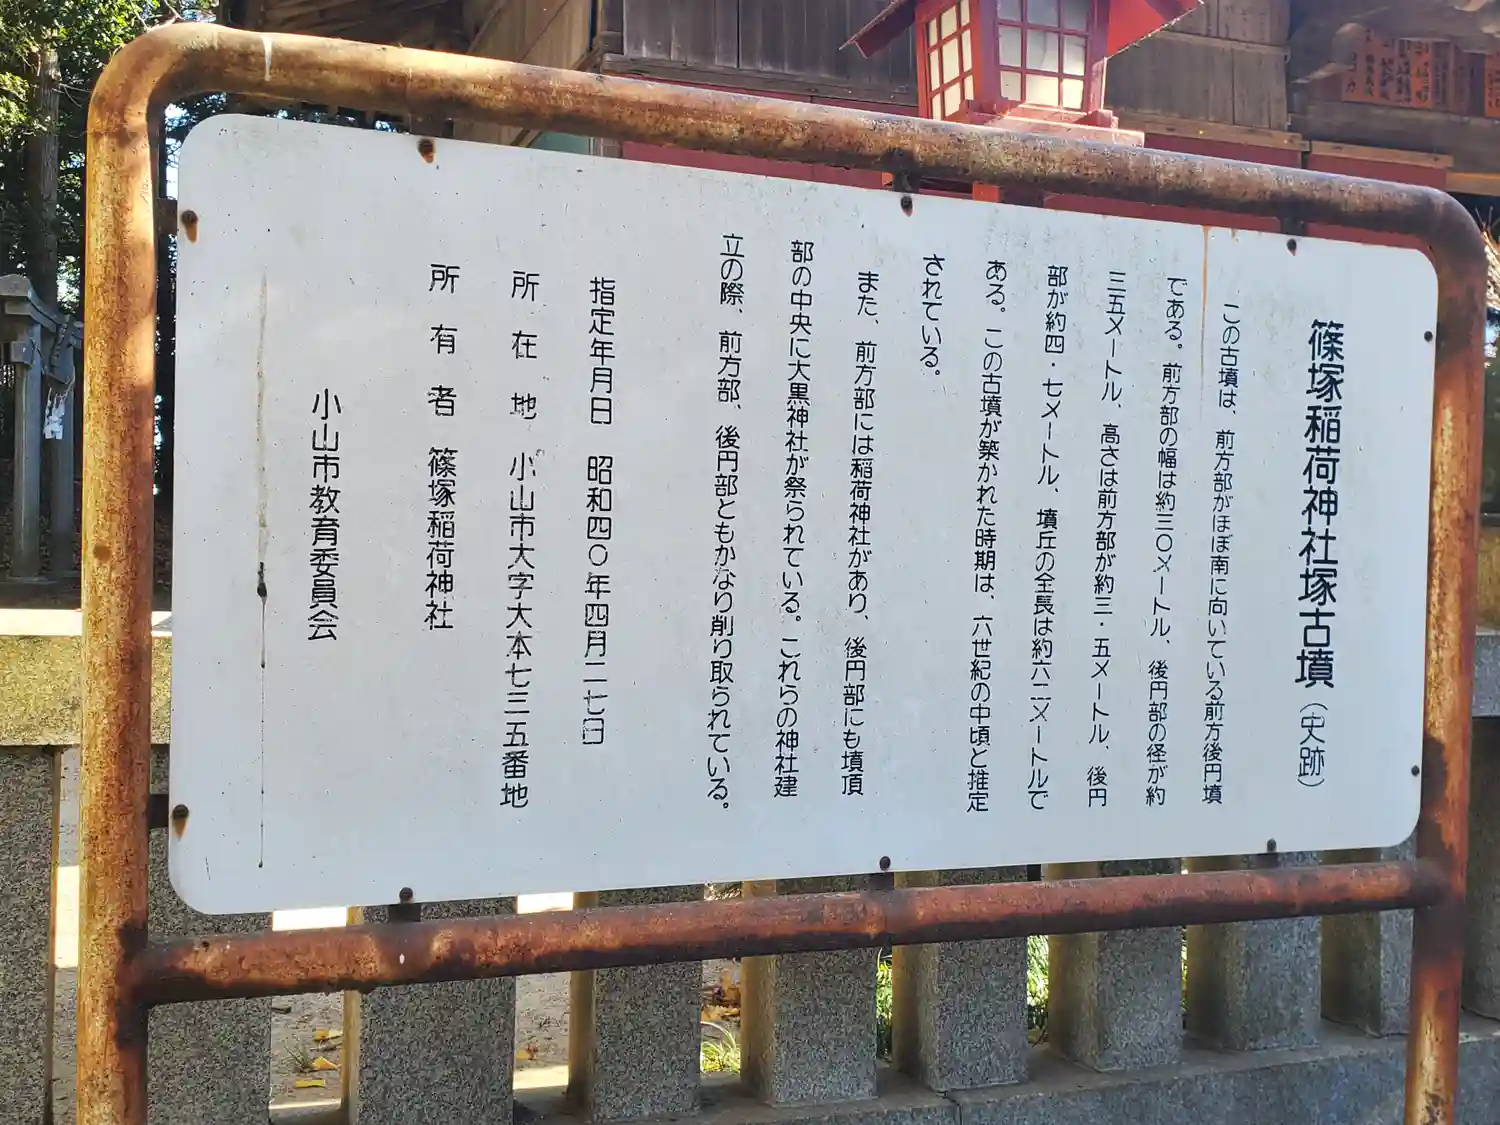 篠塚稲荷神社塚古墳（史跡）
この古墳は、前方部がほぼ南に向いている前方後円墳
である。前方部の幅は約三〇メートル、後円部の径が約
三五メートル、高さは前方部が約三・五メートル、後円
部が約四・七メートル、墳丘の全長は約六二メートルで
ある。この古墳が築かれた時期は、六世紀の中頃と推定
されている。
また、前方部には稲荷神社があり、後円部にも墳頂
部の中央に大黒神社が祭られている。これらの神社建
立の際、前方部、後円部ともかなり削り取られている。
指定年月日　昭和四〇年四月二七日
所在地　小山市大字大本七三五番地
所有者　篠塚稲荷神社
小山市教育委員会